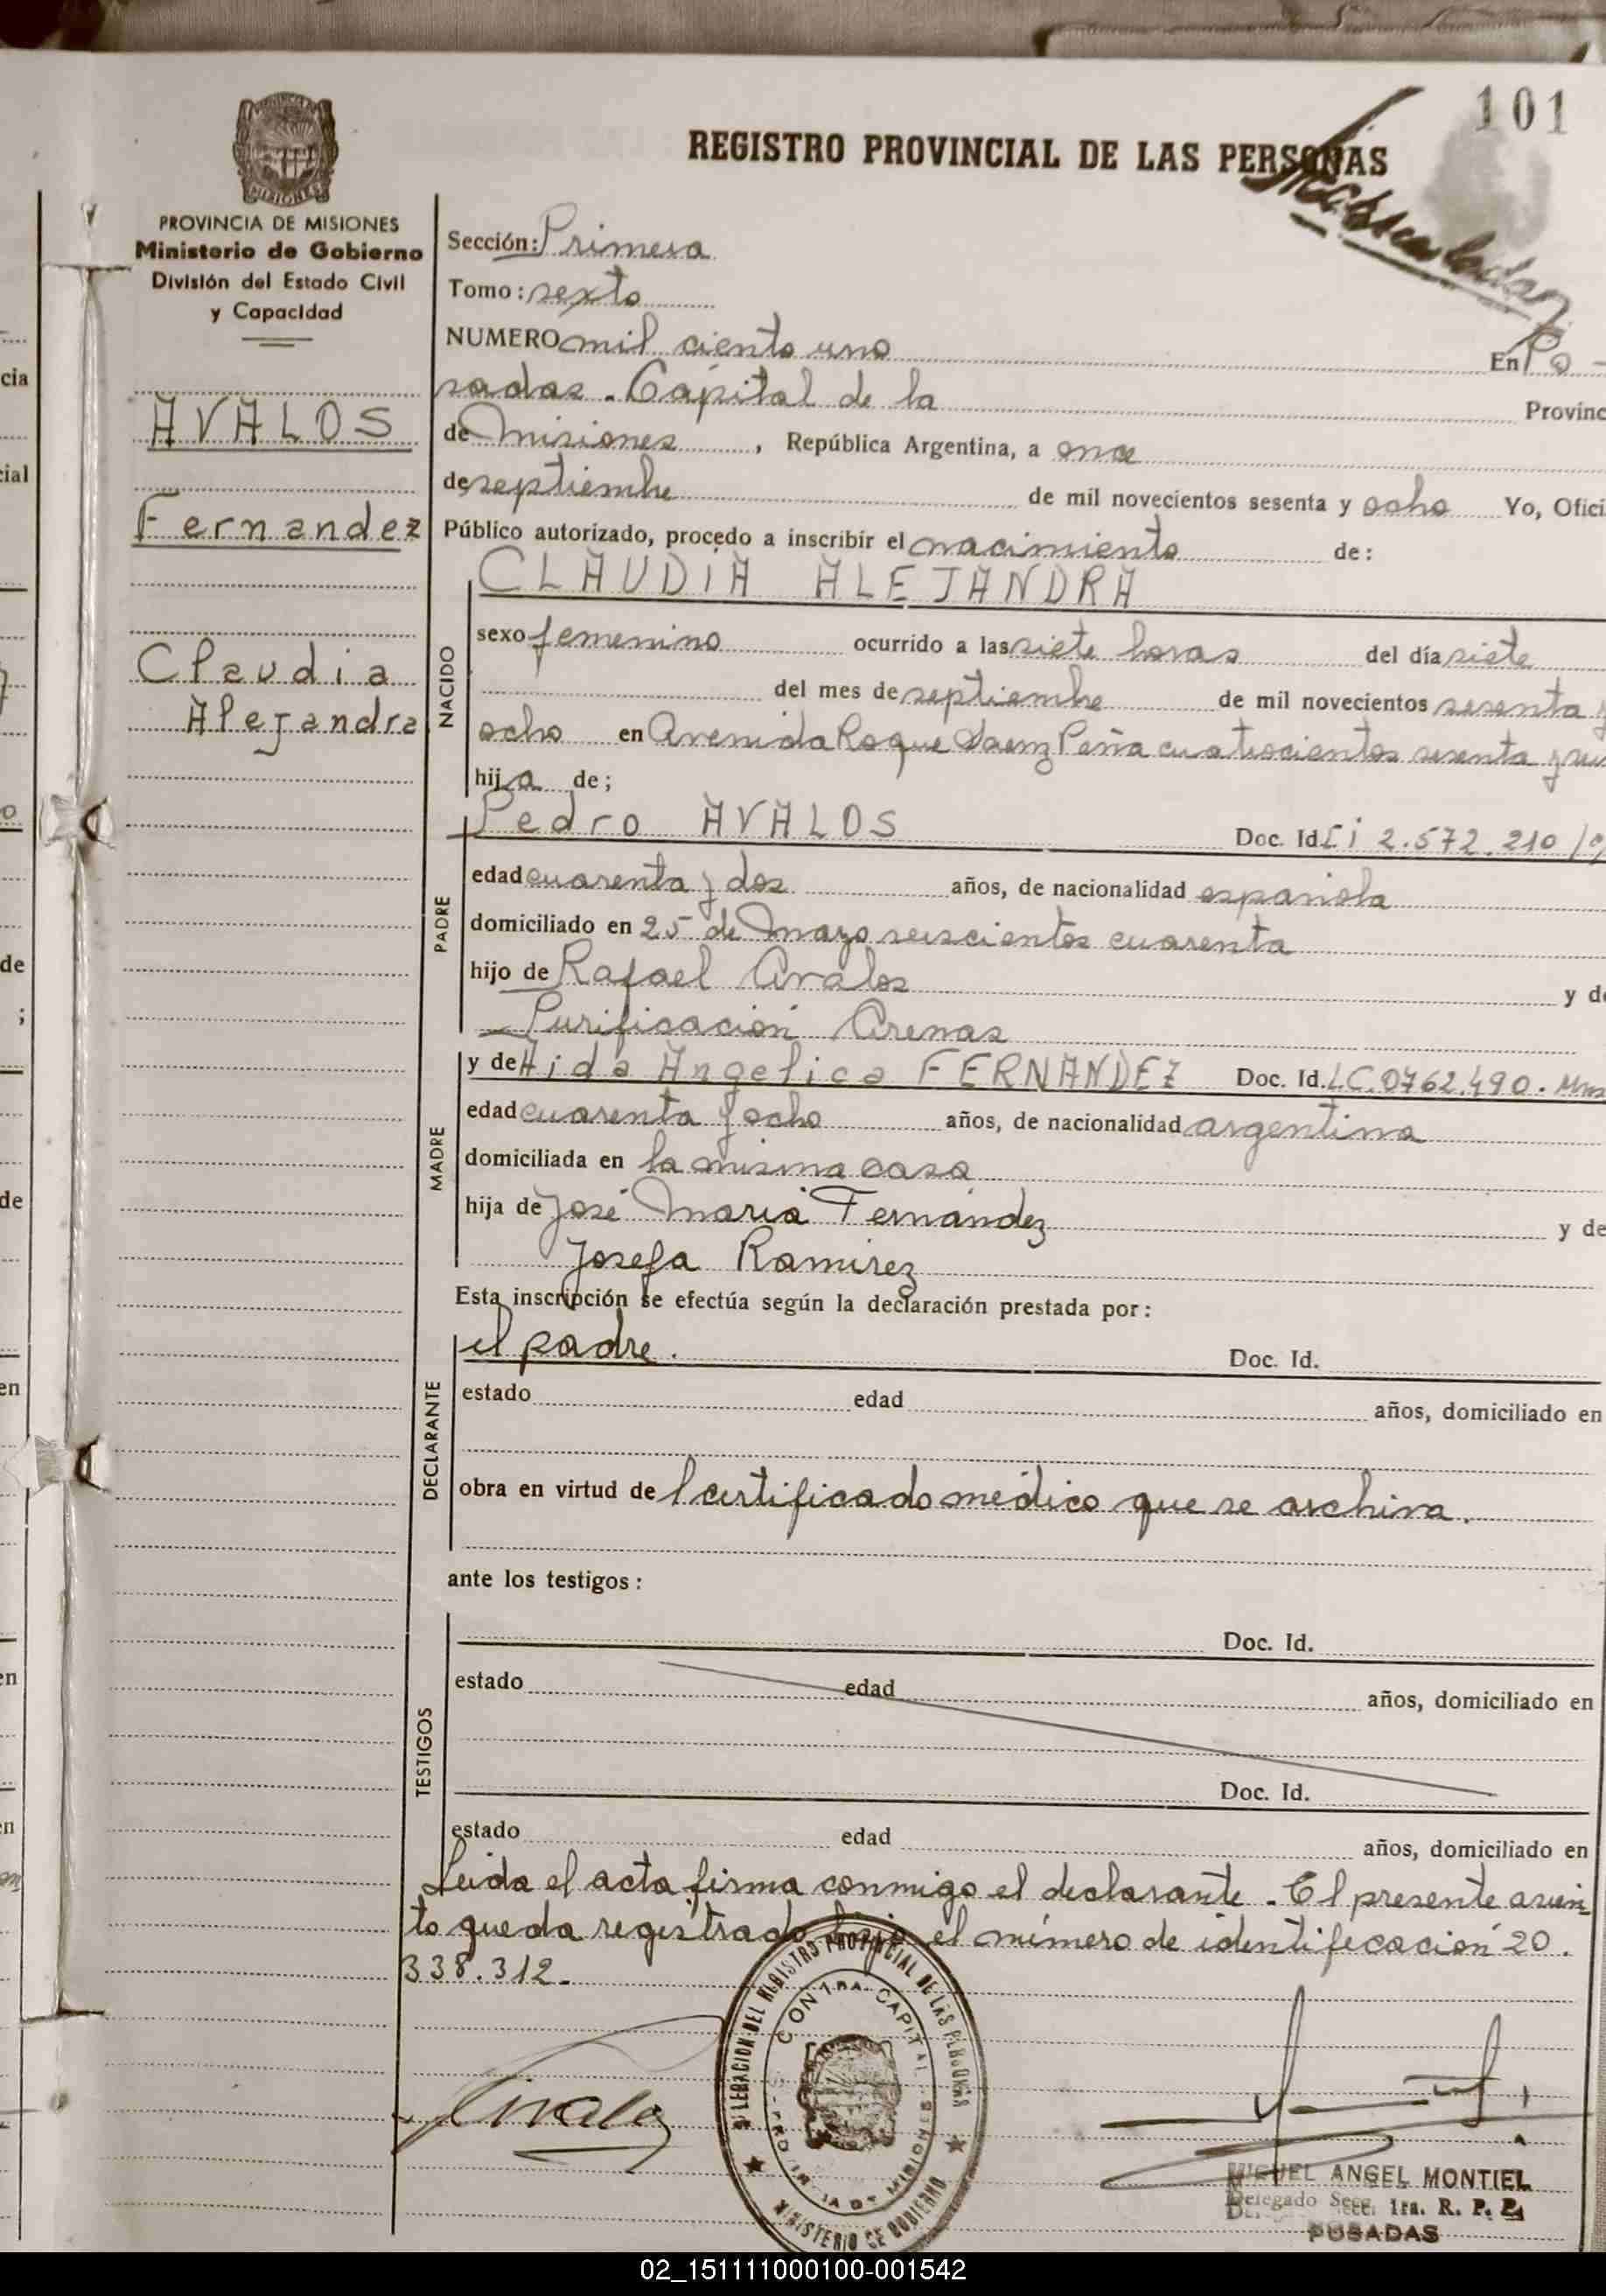 101
REGISTRO PROVINCIAL DE LAS PERSONAS
PROVINCIA DE MISIONES
Ministerio de Gobierno
División del Estado Civil
y Capacidad
AVALOS
Fernandez
Claudia
Alejandra
Sección: Primera
Tomo: sexto
NUMERO mil ciento uno En Po-
sadas. Capital de la Provinc
de Misiones, República Argentina, a once
de septiembre de mil novecientos sesenta y ocho Yo, Ofici
Público autorizado, procedo a inscribir el nacimiento de:
NACIDO
CLAUDIA ALEJANDRA
sexo femenino ocurrido a las siete horas del día siete
del mes de septiembre de mil novecientos sesenta y
ocho en Avenida Roque Saenz Peña cuatrocientos sesenta y
hija de;
PADRE
Pedro AVALOS Doc. Id. CI 2.572.210
edad cuarenta y dos años, de nacionalidad española
domiciliado en 25 de Mayo seiscientos cuarenta
hijo de Rafael Avalos y de
Purificación Arenas
MADRE
y de Aida Angelica FERNANDEZ Doc. Id. L.C. 0762.490.
edad cuarenta y ocho años, de nacionalidad argentina
domiciliada en la misma casa
hija de José María Fernández y de
Josefa Ramirez
Esta inscripción se efectúa según la declaración prestada por:
DECLARANTE
el padre. Doc. Id.
estado edad años, domiciliado en
obra en virtud del certificado médico que se archiva.
ante los testigos:
TESTIGOS
Doc. Id.
estado edad años, domiciliado en
Doc. Id.
estado edad años, domiciliado en
Leida el acta, firma conmigo el declarante. El presente asien
to queda registrado bajo el número de identificación 20.
338.312.
DELEGACION DEL REGISTRO PROVINCIAL DE LAS PERSONAS
MINISTERIO DE GOBIERNO
CAPITAL
PROVINCIA DE MISIONES
MIGUEL ANGEL MONTIEL
Delegado Secc. 1ra. R. P. P.
POSADAS
cia
cial
de
;
de
en
en
en
02_151111000100-001542